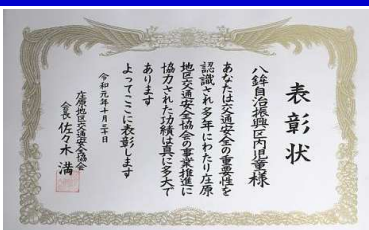 表彰状
八鉾自治振興区内児童様
あなたは交通安全の重要性を
認識され多年にわたり庄原
地区交通安全協会の事業推進に
協力された功績は真に多大で
あります
よってここに表彰します
令和元年十月二十日
庄原地区交通安全協会
会長 佐々木 満